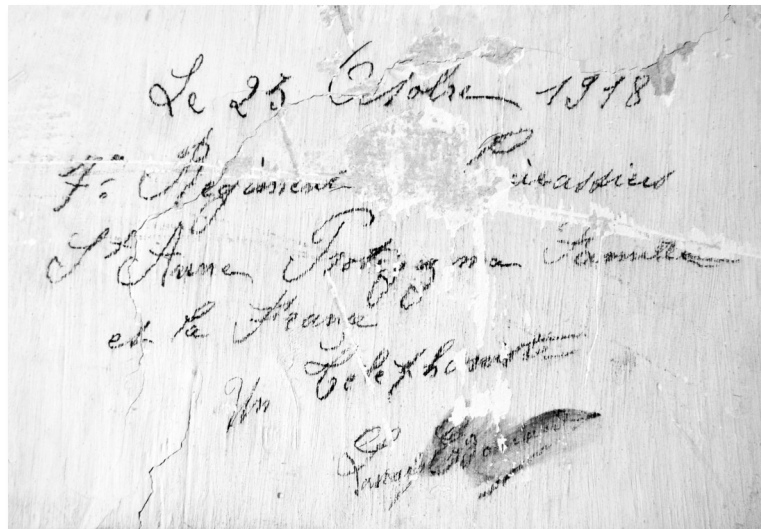 Le 25 Octobre 1918
7e Régiment Cuirassiers
Ste Anne Protégez ma Famille
et la France
Un Téléphoniste